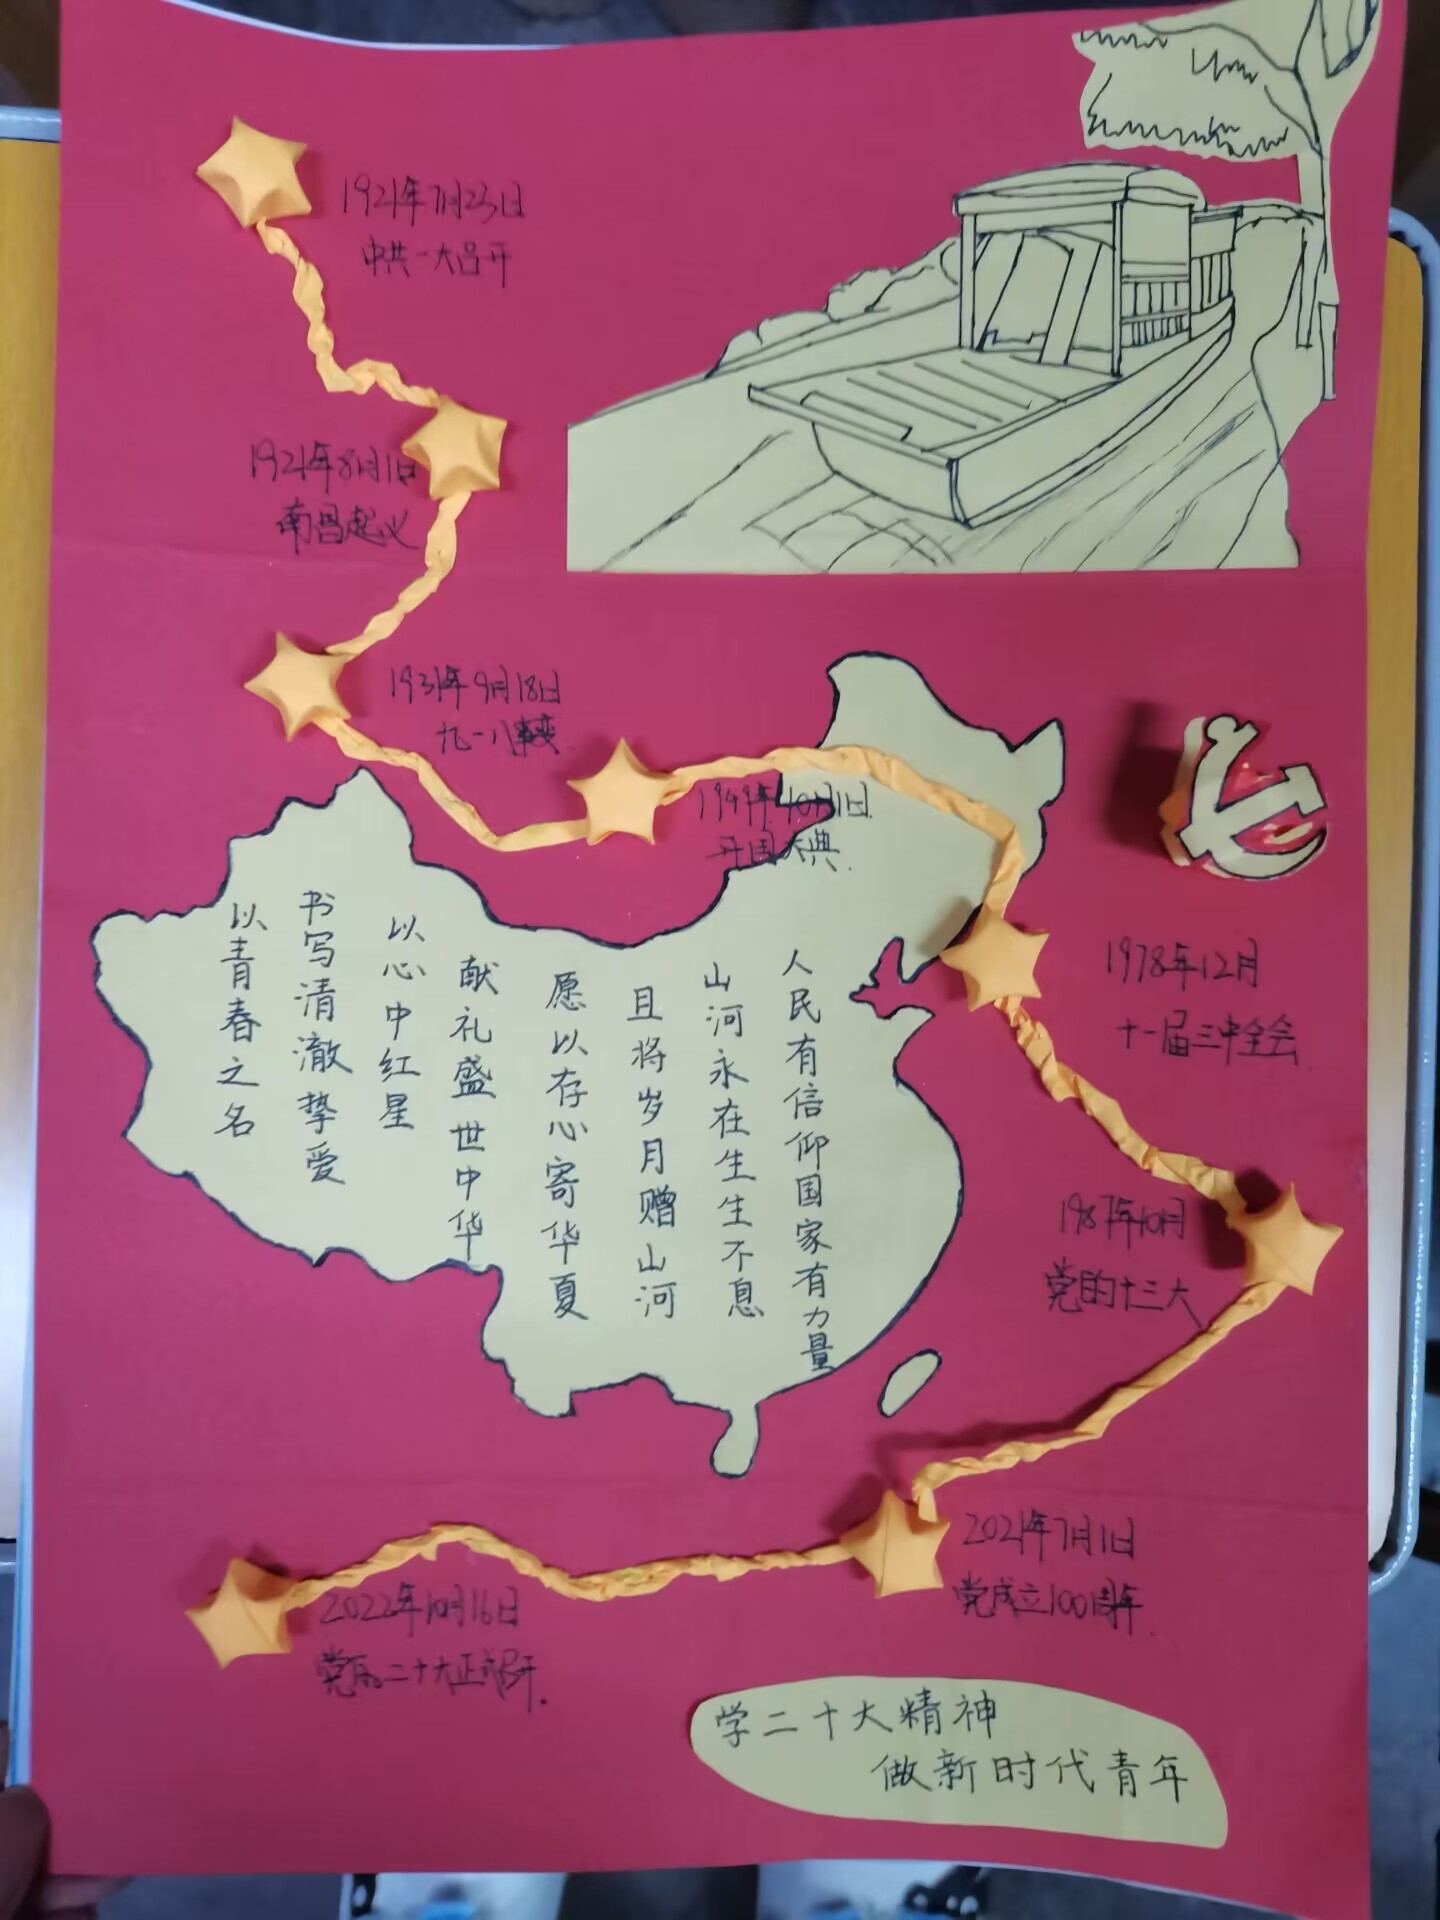 1921年7月23日
中共一大召开
1921年8月1日
南昌起义
1931年9月18日
九一八事变
1949年10月1日
开国大典
1978年12月
十一届三中全会
1987年10月
党的十三大
2021年7月1日
党成立100周年
2022年10月16日
党的二十大正式召开
人民有信仰国家有力量
山河永在生生不息
且将岁月赠山河
愿以存心寄华夏
献礼盛世中华
以心中红星
书写清澈挚爱
以青春之名
学二十大精神
做新时代青年